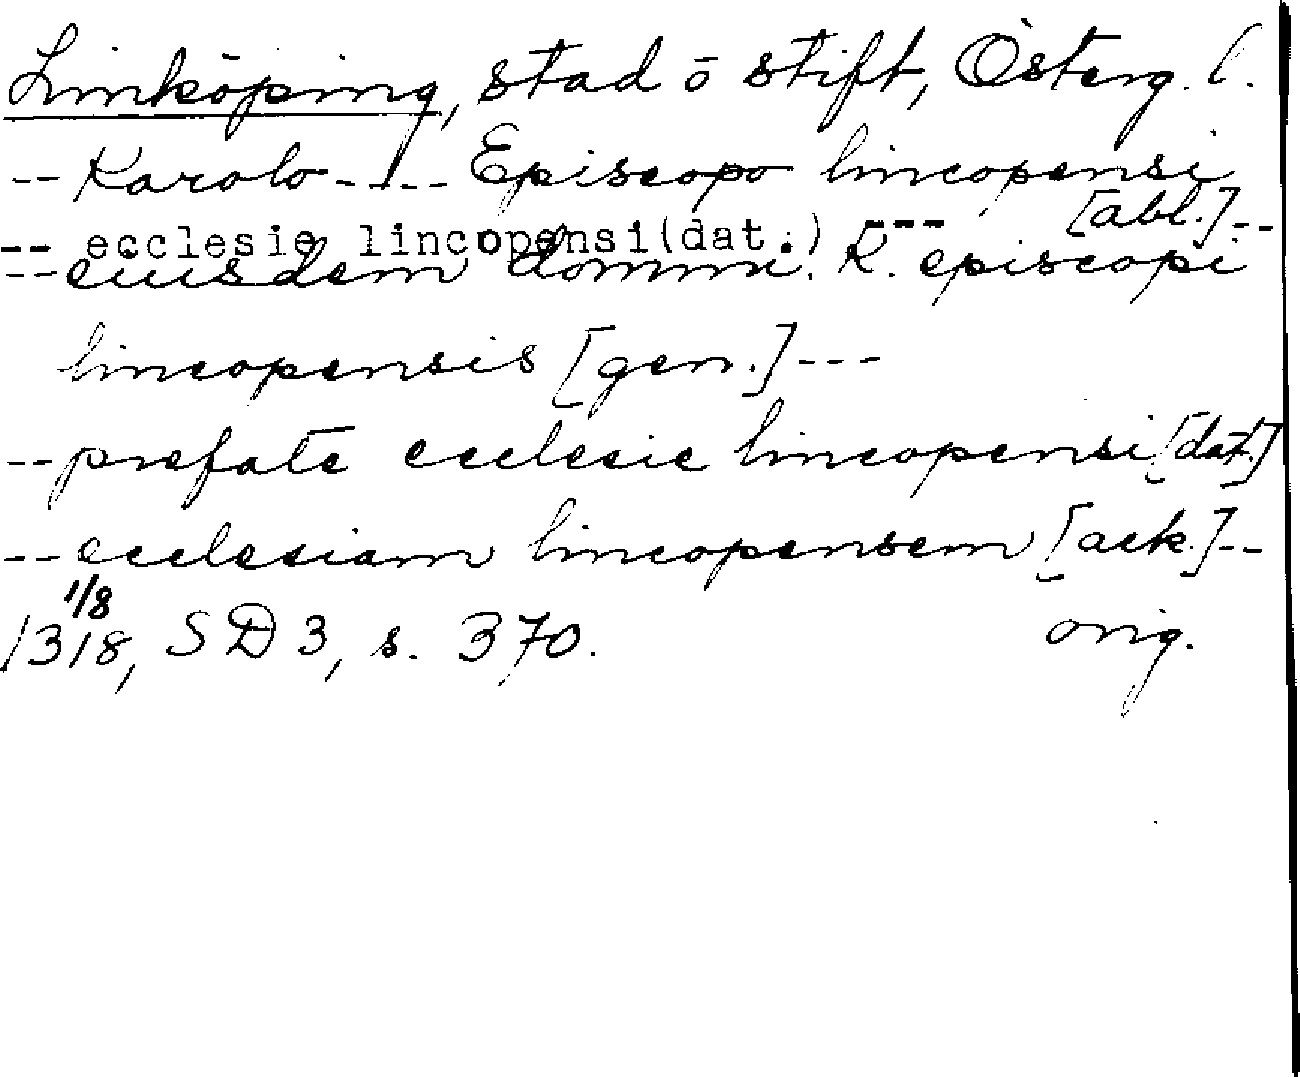 Linköping, stad o stift, Österg. l.
-- Karolo ---- Episcopo lincopensi
[abl.]--
-- ecclesie lincopensi(dat.) ---
-- eiusdem domini. K. episcopi
lincopensis [gen.] ---
-- prefate ecclesie lincopensi [dat.]
-- ecclesiam lincopensem [ack.]--
1/8
1318, SD 3, s. 370. orig.